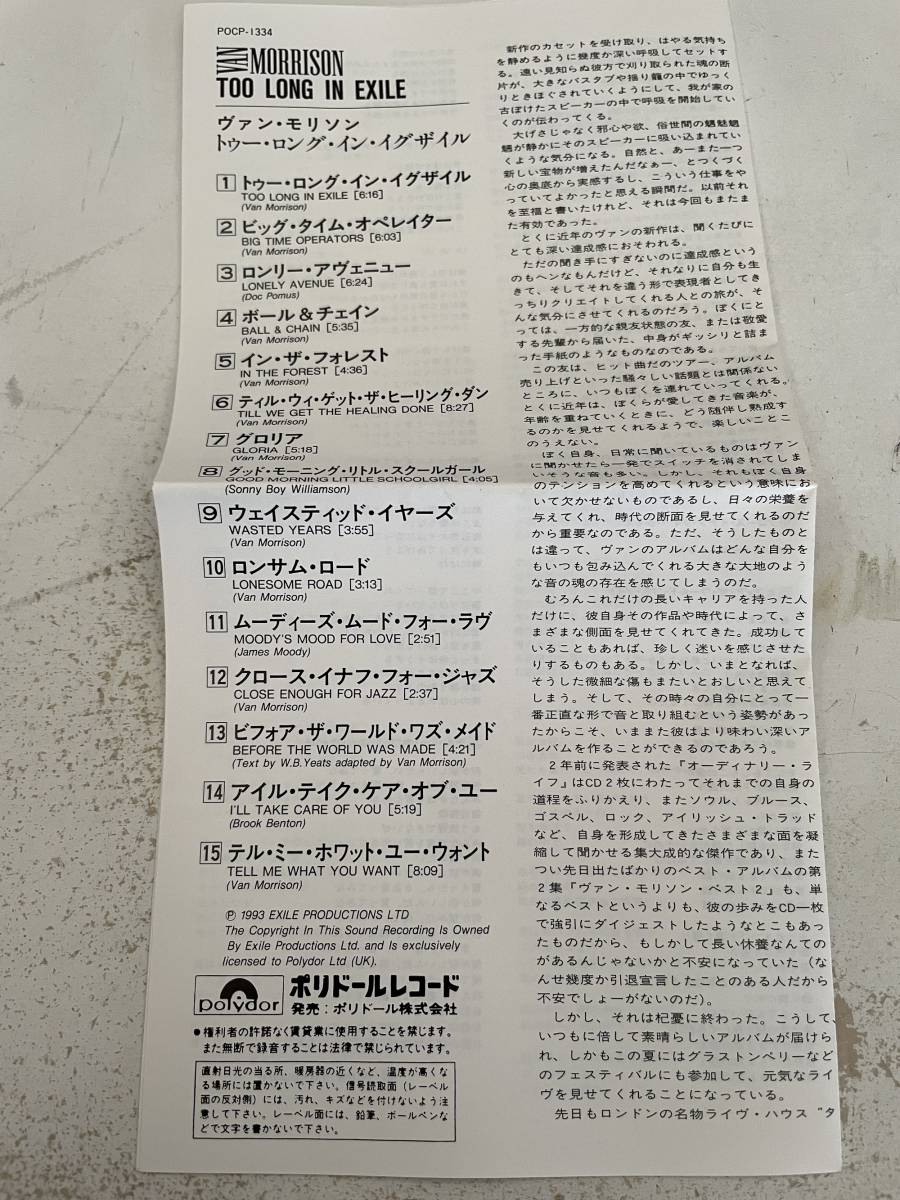 POCP-1334
VAN MORRISON
TOO LONG IN EXILE
ヴァン・モリソン
トゥー・ロング・イン・イグザイル
1 トゥー・ロング・イン・イグザイル
TOO LONG IN EXILE [6:16]
(Van Morrison)
2 ビッグ・タイム・オペレイター
BIG TIME OPERATORS [6:03]
(Van Morrison)
3 ロンリー・アヴェニュー
LONELY AVENUE [6:24]
(Doc Pomus)
4 ボール&チェイン
BALL & CHAIN [5:35]
(Van Morrison)
5 イン・ザ・フォレスト
IN THE FOREST [4:36]
(Van Morrison)
6 ティル・ウィ・ゲット・ザ・ヒーリング・ダン
TILL WE GET THE HEALING DONE [8:27]
(Van Morrison)
7 グロリア
GLORIA [5:18]
(Van Morrison)
8 グッド・モーニング・リトル・スクールガール
GOOD MORNING LITTLE SCHOOLGIRL [4:05]
(Sonny Boy Williamson)
9 ウェイスティッド・イヤーズ
WASTED YEARS [3:55]
(Van Morrison)
10 ロンサム・ロード
LONESOME ROAD [3:13]
(Van Morrison)
11 ムーディーズ・ムード・フォー・ラヴ
MOODY'S MOOD FOR LOVE [2:51]
(James Moody)
12 クロース・イナフ・フォー・ジャズ
CLOSE ENOUGH FOR JAZZ [2:37]
(Van Morrison)
13 ビフォア・ザ・ワールド・ワズ・メイド
BEFORE THE WORLD WAS MADE [4:21]
(Text by W.B.Yeats adapted by Van Morrison)
14 アイル・テイク・ケア・オブ・ユー
I'LL TAKE CARE OF YOU [5:19]
(Brook Benton)
15 テル・ミー・ホワット・ユー・ウォント
TELL ME WHAT YOU WANT [8:09]
(Van Morrison)
Ⓟ 1993 EXILE PRODUCTIONS LTD
The Copyright In This Sound Recording Is Owned
By Exile Productions Ltd. and Is exclusively
licensed to Polydor Ltd (UK).
polydor
ポリドールレコード
発売:ポリドール株式会社
●権利者の許諾なく賃貸業に使用することを禁じます。
また無断で録音することは法律で禁じられています。
直射日光の当る所、暖房器の近くなど、温度が高くな
る場所には置かないで下さい。信号読取面(レーベル
面の反対側)には、汚れ、キズなどを付けないよう注
意して下さい。レーベル面には、鉛筆、ボールペンな
どで文字を書かないで下さい。
新作のカセットを受け取り、はやる気持ち
を静めるように幾度か深い呼吸してセットす
る。遠い見知らぬ彼方で刈り取られた魂の断
片が、大きなバスタブや揺り籠の中でゆっく
りときほぐされていくようにして、我が家の
古ぼけたスピーカーの中で呼吸を開始してい
くのが伝わってくる。
大げさじゃなく邪心や欲、俗世間の魑魅魍
魎が静かにそのスピーカーに吸い込まれてい
くような気分になる。自然と、あーまた一つ
新しい宝物が増えたんだなぁー、とつくづく
心の奥底から実感するし、こういう仕事をや
っていてよかったと思える瞬間だ。以前それ
を至福と書いたけれど、それは今回もまたま
た有効であった。
とくに近年のヴァンの新作は、聞くたびに
とても深い達成感におそわれる。
ただの聞き手にすぎないのに達成感という
のもヘンなもんだけど、それなりに自分も生
きて、そしてそれを違う形で表現者としてき
っちりクリエイトしてくれる人との旅が、そ
んな気分にさせてくれるのだろう。ぼくにと
っては、一方的な親友状態の友、または敬愛
する先輩から届いた、中身がギッシリと詰ま
った手紙のようなものなのである。
この友は、ヒット曲だのツアー、アルバム
売り上げといった騒々しい話題とは関係ない
ところに、いつもぼくを連れていってくれる。
とくに近年は、ぼくらが愛してきた音楽が、
年齢を重ねていくときに、どう随伴し熟成す
るのかを見せてくれるようで、楽しいことこ
のうえない。
ぼく自身、日常に聞いているものはヴァン
に聞かせたら一発でスイッチを消されてしま
いそうな音も多い。しかし、それもぼく自身
のテンションを高めてくれるという意味にお
いて欠かせないものであるし、日々の栄養を
与えてくれ、時代の断面を見せてくれるのだ
から重要なのである。ただ、そうしたものと
は違って、ヴァンのアルバムはどんな自分を
もいつも包み込んでくれる大きな大地のよう
な音の魂の存在を感じてしまうのだ。
むろんこれだけの長いキャリアを持った人
だけに、彼自身その作品や時代によって、さ
まざまな側面を見せてくれてきた。成功して
いることもあれば、珍しく迷いを感じさせた
りするものもある。しかし、いまとなれば、
そうした微細な傷もまたいとおしいと思えて
しまう。そして、その時々の自分にとって一
番正直な形で音と取り組むという姿勢があっ
たからこそ、いままた彼はより味わい深いア
ルバムを作ることができるのであろう。
2年前に発表された『オーディナリー・ラ
イフ』はCD2枚にわたってそれまでの自身の
道程をふりかえり、またソウル、ブルース、
ゴスペル、ロック、アイリッシュ・トラッド
など、自身を形成してきたさまざまな面を凝
縮して聞かせる集大成的な傑作であり、また
つい先日出たばかりのベスト・アルバムの第
2集『ヴァン・モリソン・ベスト2』も、単
なるベストというよりも、彼の歩みをCD一枚
で強引にダイジェストしたようなとこもあっ
たものだから、もしかして長い休養なんての
があるんじゃないかと不安になっていた(な
んせ幾度か引退宣言したことのある人だから
不安でしょーがないのだ)。
しかし、それは杞憂に終わった。こうして、
いつもに倍して素晴らしいアルバムが届けら
れ、しかもこの夏にはグラストンベリーなど
のフェスティバルにも参加して、元気なライ
ヴを見せてくれることになっている。
先日もロンドンの名物ライヴ・ハウス“タ